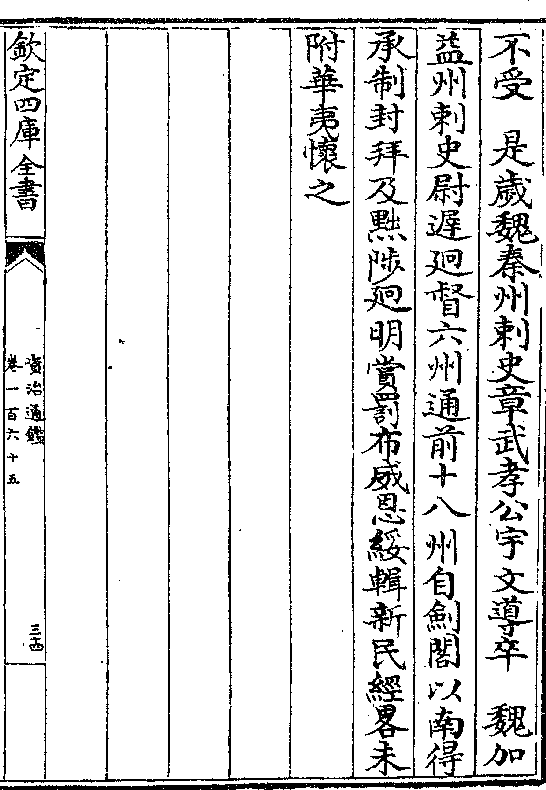 不受　是歲魏秦州刺史章武孝公宇文導卒　魏加
益州刺史尉遲廻督六州通前十八州自劍閣以南得
承制封拜及黜陟廻明賞罰布威恩綏輯新民經畧未
附華夷懷之
欽定四庫全書
資治通鑑
卷一百六十五
三十四